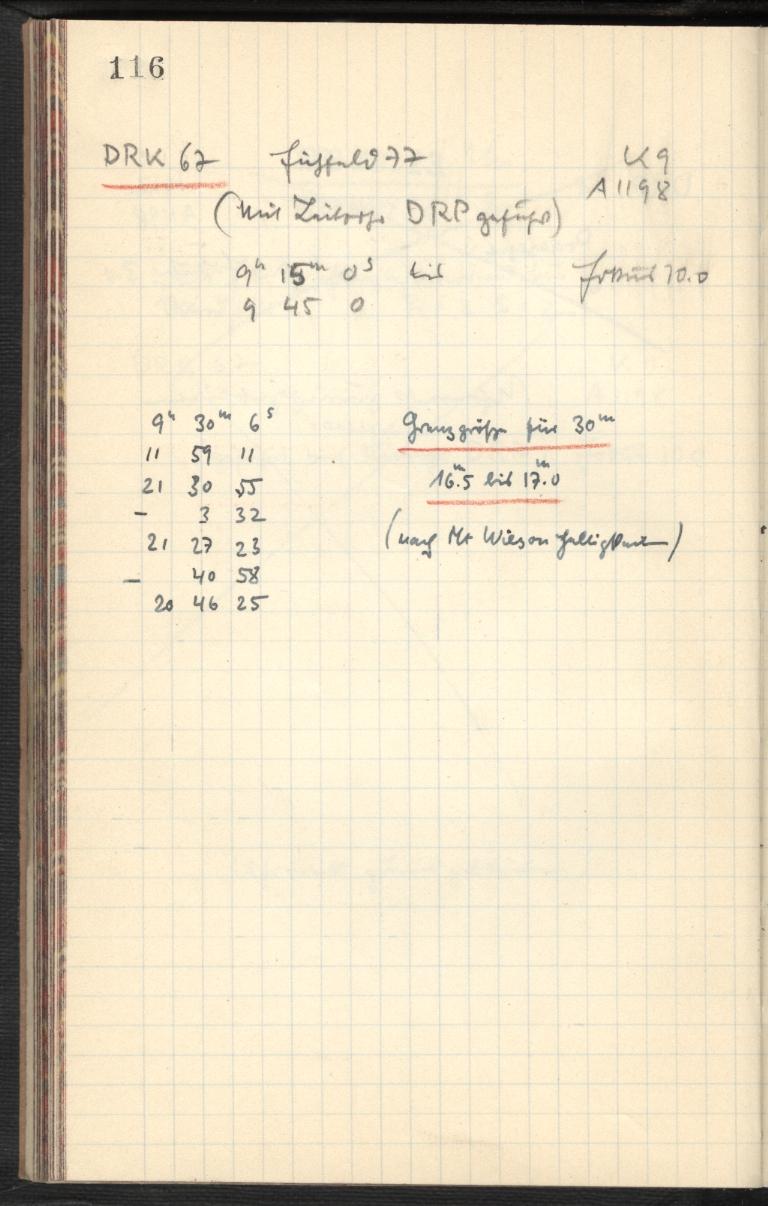 116
DRK 67 Eichfeld 77 K 9
A 1198
(mit DRP geführt)
9h 15m 0s bis 70.0
9 45 0
9h 30m 6s
11 59 11
21 30 55
- 3 32
21 27 23
- 40 58
20 46 25
Grenzgröße für 30m
16m.5 bis 17m.0
(nach Mt Wilson Helligkeiten)